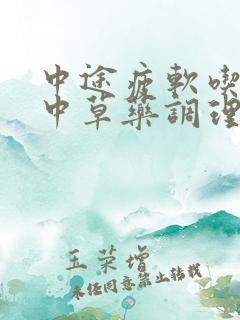 中途疲軟喫
中草藥調理
玉荣增
未经同意禁止转载